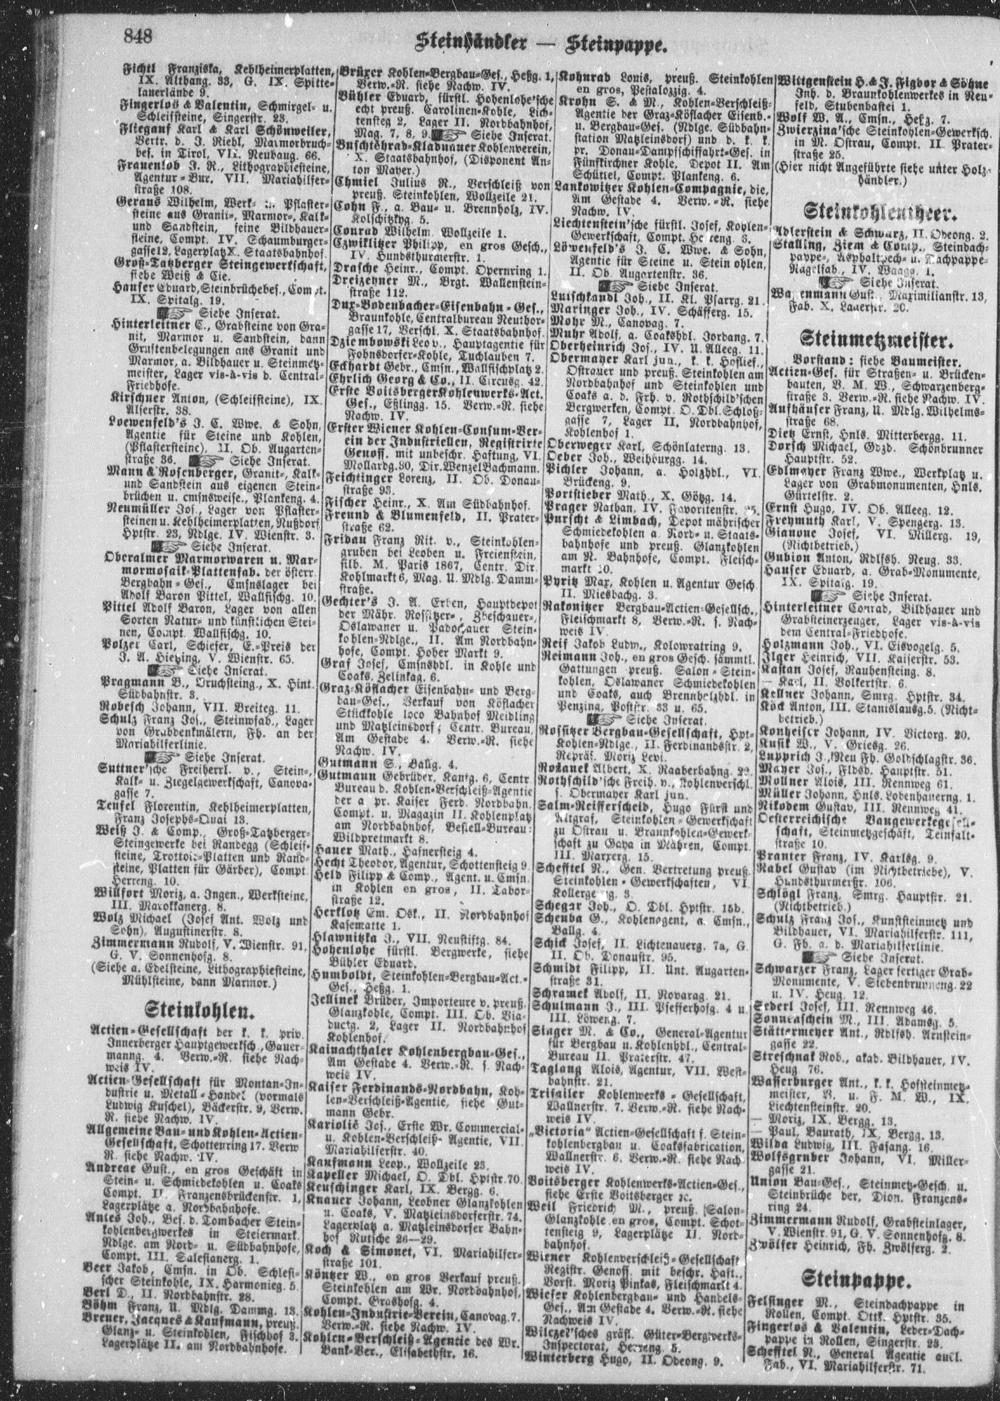 848
Steinhändler — Steinpappe.
Fichtl Franziska, Kehlheimerplatten,
IX. Althang. 33, G. IX. Spitte-
lauerlände 9.
Fingerlos & Valentin, Schmirgel- u.
Schleifsteine, Singerstr. 23.
Fliegans Karl & Karl Schönweiler,
Vertr. d. J. Riehl, Marmorbruch-
bes. in Tirol, VII. Neubaug. 66.
Frauenlob J. R., Lithographiesteine,
Agentur-Bur. VII. Mariahilfer-
straße 108.
Geraus Wilhelm, Werk- u. Pflaster-
steine aus Granit-, Marmor-, Kalk-
und Sandstein, feine Bildhauer-
steine, Compt. IV. Schaumburger-
gasse 12, Lagerplatz X. Staatsbahnhof.
Groß-Tatzberger Steingewerkschaft,
siehe Weiß & Cie.
Hauser Eduard, Steinbrüchebes., Compt.
IX. Spitalg. 19.
Siehe Inserat.
Hinterleitner C., Grabsteine von Gra-
nit, Marmor u. Sandstein, dann
Gruftenbelegungen aus Granit und
Marmor, a. Bildhauer u. Steinmetz-
meister, Lager vis-à-vis d. Central-
Friedhofe.
Kirschner Anton, (Schleifsteine), IX.
Alserstr. 38.
Loewenfeld's J. C. Wwe. & Sohn,
Agentie für Steine und Kohlen,
(Pflastersteine), II. Ob. Augarten-
straße 36. Siehe Inserat.
Mann & Rosenberger, Granit-, Kalk-
und Sandstein aus eigenen Stein-
brüchen u. cmsnsweise, Plankeng. 4.
Neumüller Jos., Lager von Pflaster-
steinen u. Kehlheimerplatten, Nußdorf
Hptstr. 23, Ndlge. IV. Wienstr. 3.
Siehe Inserat.
Oberalmer Marmorwaren u. Mar-
mormosaik-Plattenfab. der österr.
Bergbahn-Ges., Cmsnslager bei
Adolf Baron Pittel, Wallfischg. 10.
Pittel Adolf Baron, Lager von allen
Sorten Natur- und künstlichen Stei-
nen, Compt. Wallfischg. 10.
Polzer Carl, Schiefer, E.-Preis der
J. A. Hietzing, V. Wienstr. 65.
Siehe Inserat.
Pragmann B., Bruchsteing., X. Hint.
Südbahnstr. 3.
Robesch Johann, VII. Breiteg. 11.
Schulz Franz Jos., Steinwfab., Lager
von Grabdenkmälern, Fb. an der
Mariahilferlinie.
Siehe Inserat.
Suttner'sche Freiherrl. v., Stein-,
Kalk- u. Ziegelgewerkschaft, Canova-
gasse 7.
Teufel Florentin, Kehlheimerplatten,
Franz Josephs-Quai 13.
Weiß J. & Comp., Groß-Tatzberger-
Steingewerke bei Randegg (Schleif-
steine, Trottoir-Platten und Rand-
steine, Platten für Gärber), Compt.
Herreng. 10.
Willfort Moriz, a. Ingen., Werksteine,
III. Marokkanerg. 8.
Wolz Michael (Josef Ant. Wolz und
Sohn), Augustinerstr. 8.
Zimmermann Rudolf, V. Wienstr. 91,
G. V. Sonnenhofg. 8.
(Siehe a. Edelsteine, Lithographiesteine,
Mühlsteine, dann Marmor.)
Steinkohlen.
Actien-Gesellschaft der k. k. priv.
Innerberger Hauptgewerksch., Gauer-
manng. 4. Verw.-R. siehe Nach-
weis IV.
Actien-Gesellschaft für Montan-In-
dustrie u. Metall-Handel (vormals
Ludwig Kuschel), Bäckerstr. 9, Verw.
R. siehe Nachw. IV.
Allgemeine Bau- und Kohlen-Actien-
Gesellschaft, Schottenring 17. Verw
R. siehe Nachw. IV.
Andreae Gust., en gros Geschäft in
Stein- u. Schmiedekohlen u. Coaks
Compt. II. Franzensbrückenstr. 1,
Lagerplätze a. Nordbahnhofe.
Antes Joh., Bes. d. Tombacher Stein-
kohlenbergwerkes in Steiermark.
Ndlge. am Nord- u. Südbahnhofe,
Compt. III. Salesianerg. 1.
Beer Jakob, Cmsn. in Ob. Schlesi-
scher Steinkohle, IX. Harmonieg. 5.
Berl D., II. Nordbahnstr. 28.
Böhm Franz, U. Mdlg. Dammg. 13.
Brener, Jacques & Kaufmann, preuß.
Glanz- u. Steinkohlen, Fischhof 3.
Lagerplätze II. am Nordbahnhofe.
Brüxer Kohlen-Bergbau-Ges., Heßg. 1,
Verw.-R. siehe Nachw. IV.
Bühler Eduard, fürstl. Hohenlohe'sche
echt preuß. Carolinen-Kohle, Lich-
tensteg 2, Lager II. Nordbahnhof,
Mag. 7, 8, 9. Siehe Inserat.
Buschtěhrad-Kladnauer Kohlenverein,
X. Staatsbahnhof, (Disponent An-
ton Mayer.)
Chmiel Julius R., Verschleiß von
preuß. Steinkohlen, Wollzeile 21.
Cohn F., a. Bau- u. Brennholz, IV.
Kolschitzkyg. 5.
Conrad Wilhelm, Wollzeile 1.
Czwiklitzer Philipp, en gros Gesch.,
IV. Hundsthurmerstr. 1.
Drasche Heinr., Compt. Opernring 1.
Dreizehner M., Brgt. Wallenstein-
straße 112.
Dux-Bodenbacher-Eisenbahn-Ges.,
Braunkohle, Centralbureau Neuthor-
gasse 17, Verschl. X. Staatsbahnhof.
Dziembowski Leo v., Hauptagentie für
Fohnsdorfer-Kohle, Tuchlauben 7.
Eckhardt Gebr., Cmsn., Wallfischplatz 2.
Ehrlich Georg & Co., II. Circusg. 42.
Erste Voitsberger Kohlenwerks-Act.
Ges., Eßlingg. 15. Verw.-R. siehe
Nachw. IV.
Erster Wiener Kohlen-Consum-Ver-
ein der Industriellen, Registrirte
Genoss. mit unbeschr. Haftung, VI.
Mollardg. 30, Dir. Wenzel Bachmann.
Feichtinger Lorenz, II. Ob. Donau-
straße 93.
Fischer Heinr., X. Am Südbahnhof.
Freund & Blumenfeld, II. Prater-
straße 62.
Fridau Franz Rit. v., Steinkohlen-
gruben bei Leoben u. Freienstein,
silb. M. Paris 1867, Centr. Dir.
Kohlmarkt 6, Mag. U. Mdlg. Damm-
straße.
Gechter's J. A. Erben, Hauptdepot
der Mähr. Rossitzer-, Zbeschauer-,
Oslawaner u. Padochauer Stein-
kohlen-Ndlge., II. Am Nordbahn-
hofe, Compt. Hoher Markt 9.
Graf Josef, Cmsnshdl. in Kohle und
Coaks, Zelinkag. 6.
Graz-Köflacher Eisenbahn- und Berg-
bau-Ges., Verkauf von Köflacher
Stückkohle loco Bahnhof Meidling
und Matzleinsdorf; Centr. Bureau,
Am Gestade 4. Verw.-R. siehe
Nachw. IV.
Gutmann S., Ballg. 4.
Gutmann Gebrüder, Kantg. 6, Centr
Bureau d. Kohlen-Verschleiß-Agentie
der a pr. Kaiser Ferd. Nordbahn.
Compt. u. Magazin II. Kohlenplatz
am Nordbahnhof, Bestell-Bureau:
Wildpretmarkt 8.
Hauer Math., Hafnersteig 4.
Hecht Theodor, Agentur, Schottensteig 9
Held Filipp & Comp., Agent. u. Cmsn.
in Kohlen en gros, II. Tabor-
straße 12.
Herkloz Em. Osk., II. Nordbahnhof
Kasematte 1.
Hlawnitzka J., VII. Neustiftg. 84.
Hohenlohe fürstl. Bergwerke, siehe
Bühler Eduard.
Humboldt, Steinkohlen-Bergbau-Act.-
Ges., Heßg. 1.
Jellinek Brüder, Importeure v. preuß.
Glanzkohle, Compt. III. Ob. Via-
ductg. 2, Lager II. Nordbahnhof
Kohlenhof.
Kainachthaler Kohlenbergbau-Ges.,
Am Gestade 4. Verw.-R. s. Nach-
weis IV.
Kaiser Ferdinands-Nordbahn, Koh-
len-Verschleiß-Agentie, siehe Gut-
mann Gebr.
Kariolić Jos., Erste Wr. Commercial-
u. Kohlen-Verschleiß-Agentie, VII.
Mariahilferstr. 40.
Kaufmann Leop., Wollzeile 23.
Kapeller Michael, O. Dbl. Hptstr. 70.
Keuschinger Karl, IX. Bergg. 6.
Knauer Johann, Leobner Glanzkohlen
u. Coaks, V. Matzleinsdorferstr. 74.
Lagerplatz a. Matzleinsdorfer Bahn-
hof Rutsche 26—29.
Koch & Simonet, VI. Mariahilfer-
straße 101.
Köntzer W., en gros Verkauf preuß.
Steinkohlen am Wr. Nordbahnhof,
Compt. Grashofg. 4.
Kohlen-Industrie-Verein, Canovag. 7.
Verw.-R. siehe Nachw. IV.
Kohlen-Verschleiß-Agentie des Wr.
Bank-Ver., Elisabethstr. 16.
Kohnrad Louis, preuß. Steinkohlen
en gros, Pestalozzig. 4.
Krohn S. & M., Kohlen-Verschleiß-
Agentie der Graz-Köflacher Eisenb.-
u. Bergbau-Ges. (Ndlge. Südbahn-
station Matzleinsdorf) und d. k. k.
pr. Donau-Dampfschiffahrt-Ges. in
Fünfkirchner Kohle. Depot II. Am
Schüttel, Compt. Plankeng. 6.
Lankowitzer Kohlen-Compagnie, die,
Am Gestade 4. Verw.-R. siehe
Nachw. IV.
Liechtenstein'sche fürstl. Josef, Kohlen-
Gewerkschaft, Compt. Herreng. 3.
Löwenfeld's J. C. Wwe. & Sohn,
Agentie für Steine u. Steinkohlen,
II. Ob. Augartenstr. 36.
Siehe Inserat.
Lutschkandl Joh., II. Kl. Pfarrg. 21.
Maringer Joh., IV. Schäfferg. 15.
Mohr M., Canovag. 7.
Muhr Adolf, a. Coakshdl. Jordang. 7.
Oberheinrich Jos., IV. U. Alleeg. 11.
Obermayer Karl jun., k. k. Hoflief.,
Ostrauer und preuß. Steinkohlen am
Nordbahnhof und Steinkohlen und
Coaks a. d. Frh. v. Rothschild'schen
Bergwerken, Compt. O. Dbl. Schloß-
gasse 7, Lager II. Nordbahnhof,
Kohlenhof 1.
Oberweger Karl, Schönlaterng. 13.
Oeder Joh., Weihburgg. 14.
Pichler Johann, a. Holzhdl., VI.
Brückeng. 9.
Portstieber Math., X. Götzg. 14.
Prager Nathan, IV. Favoritenstr. 25.
Purscht & Limbach, Depot mährischer
Schmiedekohlen a. Nord- u. Staats-
bahnhofe und preuß. Glanzkohlen
am N. Bahnhofe, Compt. Fleisch-
markt 10.
Pyritz Max, Kohlen u. Agentur Gesch.
II. Miesbachg. 3.
Rakonitzer Bergbau-Actien-Gesellsch.,
Fleischmarkt 8, Verw.-R. s. Nach-
weis IV
Reif Jakob Ludw., Kolowratring 9.
Reimann Joh., en gros Gesch. sämmtl.
Gattungen preuß. Salon-Stein-
kohlen, Oslawaner Schmiedekohlen
und Coaks, auch Brennholzhdl. in
Penzing, Poststr. 33 u. 65.
Siehe Inserat.
Rossitzer Bergbau-Gesellschaft, Hpt-
Kohlen-Ndlge., II. Ferdinandsstr. 2,
Repräs. Moriz Levi.
Rožanek Albert, X. Raaberbahng. 22.
Rothschild'sche Freih. v., Kohlenverschl.
s. Obermayer Karl jun.
Salm-Reifferscheid, Hugo Fürst und
Altgraf, Steinkohlen-Gewerkschaft
zu Ostrau u. Braunkohlen-Gewerk-
schaft zu Gaya in Mähren, Compt.
III. Marxerg. 15.
Schefftel N., Gen. Vertretung preuß.
Steinkohlen-Gewerkschaften, VI
Kollerge g. 3.
Schegar Joh., O. Dbl. Hptstr. 15b.
Scheuba G., Kohlenogent, a. Cmsn.,
Ballg. 4.
Schick Josef, II. Lichtenauerg. 7a, G.
II. Ob. Donaustr. 95.
Schmidt Filipp, II. Unt. Augarten-
straße 31.
Schramek Adolf, II. Novarag. 21.
Schulmann J., III. Pfefferhofg. 4 u.
III. Löweng. 7.
Singer M. & Co., General-Agentur
für Bergbau u. Kohlenhdl., Central-
Bureau II. Praterstr. 47.
Taglang Alois, Agentur, VII. West-
bahnstr. 21.
Trifailer Kohlenwerks-Gesellschaft,
Wallnerstr. 7. Verw.-R. siehe Nach-
weis IV.
„Victoria" Actien-Gesellschaft f. Stein-
kohlenbergbau u. Coaksfabrication,
Wallnerstr. 6. Verw.-R. siehe Nach-
weis IV.
Voitsberger Kohlenwerks-Actien-Ges.,
siehe Erste Voitsberger ꝛc.
Weil Friedrich M., preuß. Salon-
Glanzkohle en gros, Compt. Schot-
tensteig 9, Lagerplätze II. Nord-
bahnhof.
Wirner Kohlenverschleiß-Gesellschaft
Registr. Genoss. mit beschr. Haft.,
Vorst. Moriz Pinkas, Fleischmarkt 4.
Wieser Kohlenbergbau- und Handels-
Ges., Am Gestade 4. Verw.-R. siehe
Nachweis IV.
Wilczel'sches gräfl. Güter-Bergwerks-
Inspectorat, Herreng. 5.
Winterberg Hugo, II. Obeong. 9.
Wittgenstein H. & J. Figdor & Söhne
Inh. d. Braunkohlenwerkes in Neu-
feld, Stubenbastei 1.
Wolf W. A., Cmsn., Heßg. 7.
Zwierzina'sche Steinkohlen-Gewerksch.
in M. Ostrau, Compt. II. Prater-
straße 25.
(Hier nicht Angeführte siehe unter Holz-
händler.)
Steinkohlentheer.
Adlerstein & Schwarz, II. Obeong. 2.
Stalling, Ziem & Comp., Steindach-
pappe-, Asphaltpech- u. Dachpappe-
Nägelfab., IV. Waagg. 1.
Siehe Inserat.
Wagenmann Gust., Maximilianstr. 13,
Fab. X. Laxerstr. 20.
Steinmetzmeister.
Vorstand: siehe Baumeister.
Actien-Ges. für Straßen- u. Brücken-
bauten, B. M. W., Schwarzenberg-
straße 3. Verw.-R. siehe Nachw. IV.
Aufhäuser Franz, U. Mdlg. Wilhelms-
straße 68.
Dietz Ernst, Hnls. Mitterbergg. 11.
Dorsch Michael, Gdzd. Schönbrunner
Hauptstr. 52.
Edlmayer Franz Wwe., Werkplatz u.
Lager von Grabmonumenten, Hnls.
Gürtelstr. 2.
Ernst Hugo, IV. Ob. Alleeg. 12.
Freymuth Karl, V. Spengerg. 13.
Gianone Josef, VI. Millerg. 19,
(Nichtbetrieb.)
Gubion Anton, Rdlfsh. Reug. 33.
Hauser Eduard, a. Grab-Monumente,
IX. Spitalg. 19.
Siehe Inserat.
Hinterleitner Conrad, Bildhauer und
Grabsteinerzeuger, Lager vis-à-vis
dem Central-Friedhofe.
Holzmann Joh., VI. Eisvogelg. 5.
Jlger Heinrich, VII. Kaiserstr. 53.
Kastan Josef, Raubensteing. 8.
— Karl, II. Volkertstr. 6.
Kellner Johann, Smrg. Hptstr. 34.
Köck Anton, III. Stanislausg. 5. (Nicht-
betrieb.)
Konheiser Johann, IV. Victorg. 20.
Kusik W., V. Griesg. 26.
Lupprich J., Neu Fh. Goldschlagstr. 36.
Mayer Jos., Fldsd. Hauptstr. 51.
Mollner Alois, III. Rennweg 61.
Müller Johann, Hnls. Lobenhauerng. 1.
Nikodem Gustav, III. Rennweg 41.
Oesterreichische Baugewerkegesell-
schaft, Steinmetzgeschäft, Teinfalt-
straße 10.
Pranter Franz, IV. Karlsg. 9.
Rabel Gustav (im Nichtbetriebe), V.
Hundsthurmerstr. 106.
Schlögl Franz, Smrg. Hauptstr. 21.
(Nichtbetrieb.)
Schulz Franz Jos., Kunststeinmetz und
Bildhauer, VI. Mariahilferstr. 111,
G. Fh. a. d. Mariahilferlinie.
Siehe Inserat.
Schwarzer Franz, Lager fertiger Grab-
Monumente, V. Siebenbrunneng. 22
u. IV. Heug. 12.
Sederl Josef, III. Rennweg 46.
Sonnenschein M., III. Adamsg. 5.
Stättermeyer Ant., Rdlfsh. Arnstein-
gasse 22.
Streschnak Rob., akad. Bildhauer, IV.
Heug. 76.
Wasserburger Ant., k. k. Hofsteinmetz-
meister, B. u. F. M. W., IX.
Liechtensteinstr. 20.
— Moriz, IX. Bergg. 13.
— Paul, Baurath, IX. Bergg. 13.
Wilda Ludwig, III. Fasang. 16.
Wolfsgruber Johann, VI. Miller-
gasse 21.
Union Bau-Ges., Steinmetz-Gesch. u.
Steinbrüche der, Dion. Franzens-
ring 24.
Zimmermann Rudolf, Grabsteinlager,
V. Wienstr. 91, G. V. Sonnenhofg. 8.
Zwölfer Heinrich, Fh. Zwölferg. 2.
Steinpappe.
Felsinger M., Steindachpappe in
Rollen, Compt. Ottk. Hptstr. 35.
Fingerlos & Valentin, Leder-Dach-
pappe in Rollen, Singerstr. 23.
Schefftel N., General Agentie ausl.
Fab., VI. Mariahilferstr. 71.